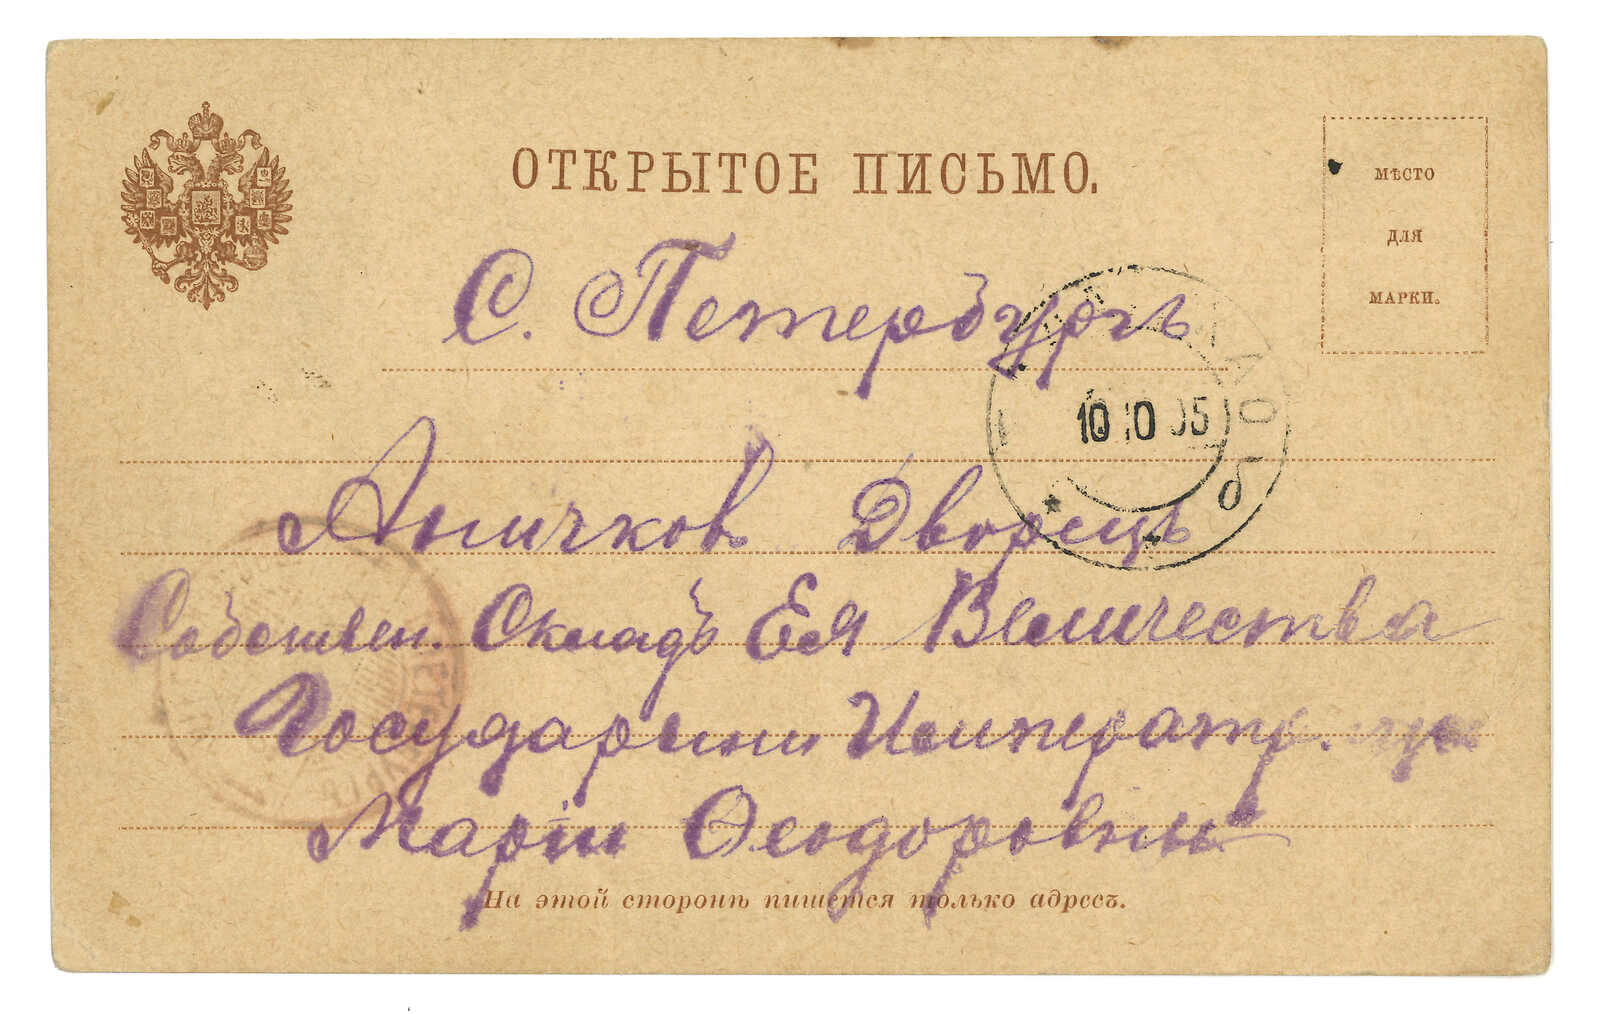 ОТКРЫТОЕ ПИСЬМО.
МѢСТО
ДЛЯ
МАРКИ.
С. Петербургъ
10 10 05
б
Аничков Дворецъ
Собствен. Складъ Ея Величества
Государыни Императрицы
Маріи Ѳеодоровны
На этой сторонѣ пишется только адресъ.